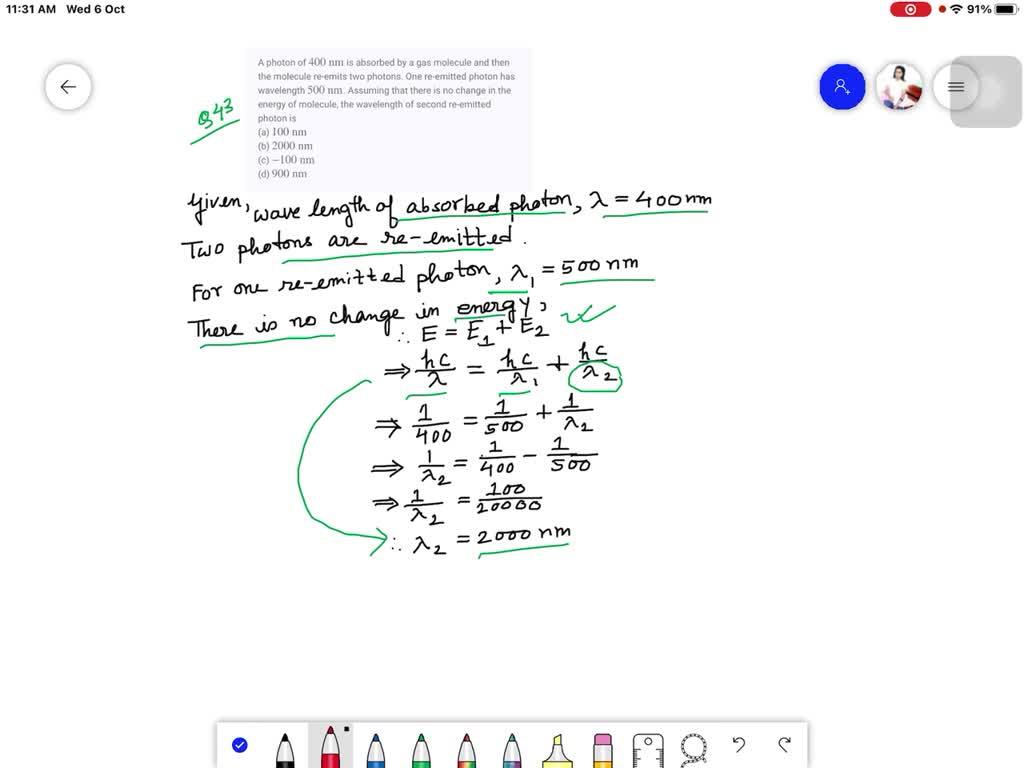 11:31 AM Wed 6 Oct
91%
A photon of 400 nm is absorbed by a gas molecule and then
the molecule re-emits two photons. One re-emitted photon has
wavelength 500 nm. Assuming that there is no change in the
energy of molecule, the wavelength of second re-emitted
photon is
(a) 100 nm
(b) 2000 nm
(c) −100 nm
(d) 900 nm
Q43
Given, wave length of absorbed photon, λ = 400 nm
Two photons are re-emitted.
For one re-emitted photon, λ₁ = 500 nm
There is no change in energy,
∴ E = E₁ + E₂
⇒ hc/λ = hc/λ₁ + hc/λ₂
⇒ 1/400 = 1/500 + 1/λ₂
⇒ 1/λ₂ = 1/400 − 1/500
⇒ 1/λ₂ = 100/20000
∴ λ₂ = 2000 nm